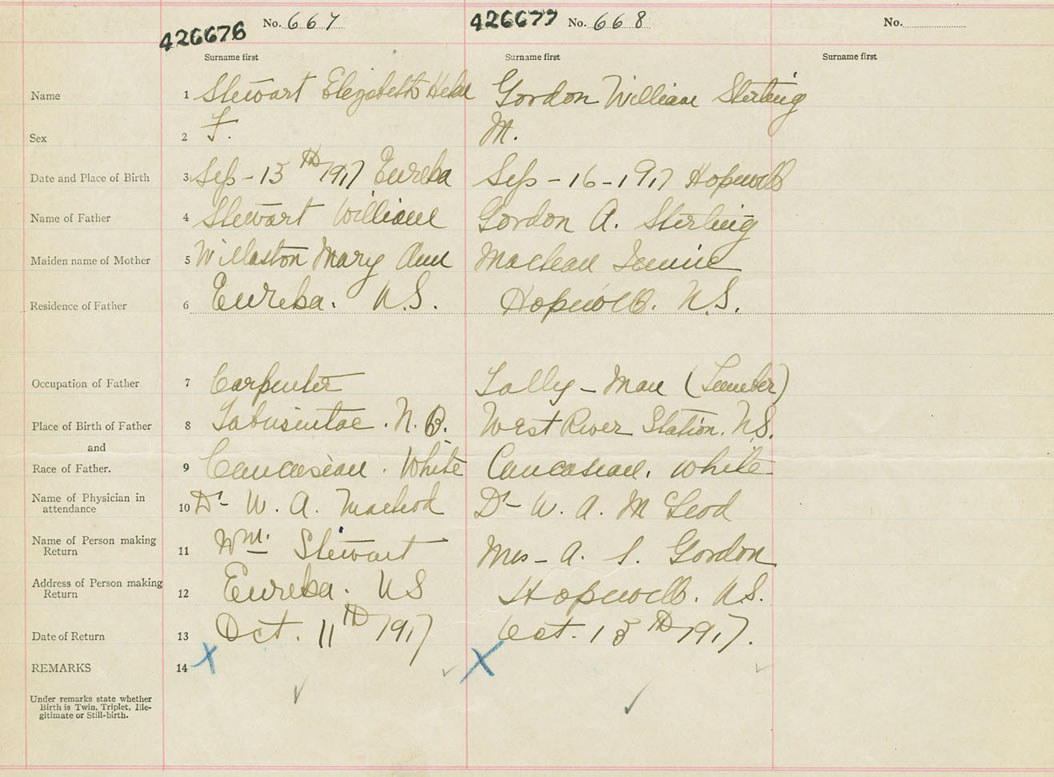 426676 No. 667 426677 No. 668 No.
Surname first Surname first Surname first
Name 1 Stewart Elizabeth Helen Gordon William Sterling
Sex 2 F. M.
Date and Place of Birth 3 Sep - 13TH 1917 Eureka Sep - 16 - 1917 Hopewell
Name of Father 4 Stewart William Gordon A. Sterling
Maiden name of Mother 5 Willaston Mary Ann Maclean Jennie
Residence of Father 6 Eureka. N.S. Hopewell. N.S.
Occupation of Father 7 Carpenter Tally - Man (Lumber)
Place of Birth of Father 8 Tabusintac. N.B. West River Station. N.S.
and
Race of Father. 9 Caucasian. White Caucasian. White
Name of Physician in
attendance 10 Dr- W. A. Macleod Dr- W. A. McLeod
Name of Person making
Return 11 Wm. Stewart Mrs - A. S. Gordon
Address of Person making
Return 12 Eureka. NS Hopewell. N.S.
Date of Return 13 Oct. 11TH 1917 Oct. 13TH 1917.
REMARKS 14
Under remarks state whether
Birth is Twin, Triplet, Ille-
gitimate or Still-birth.